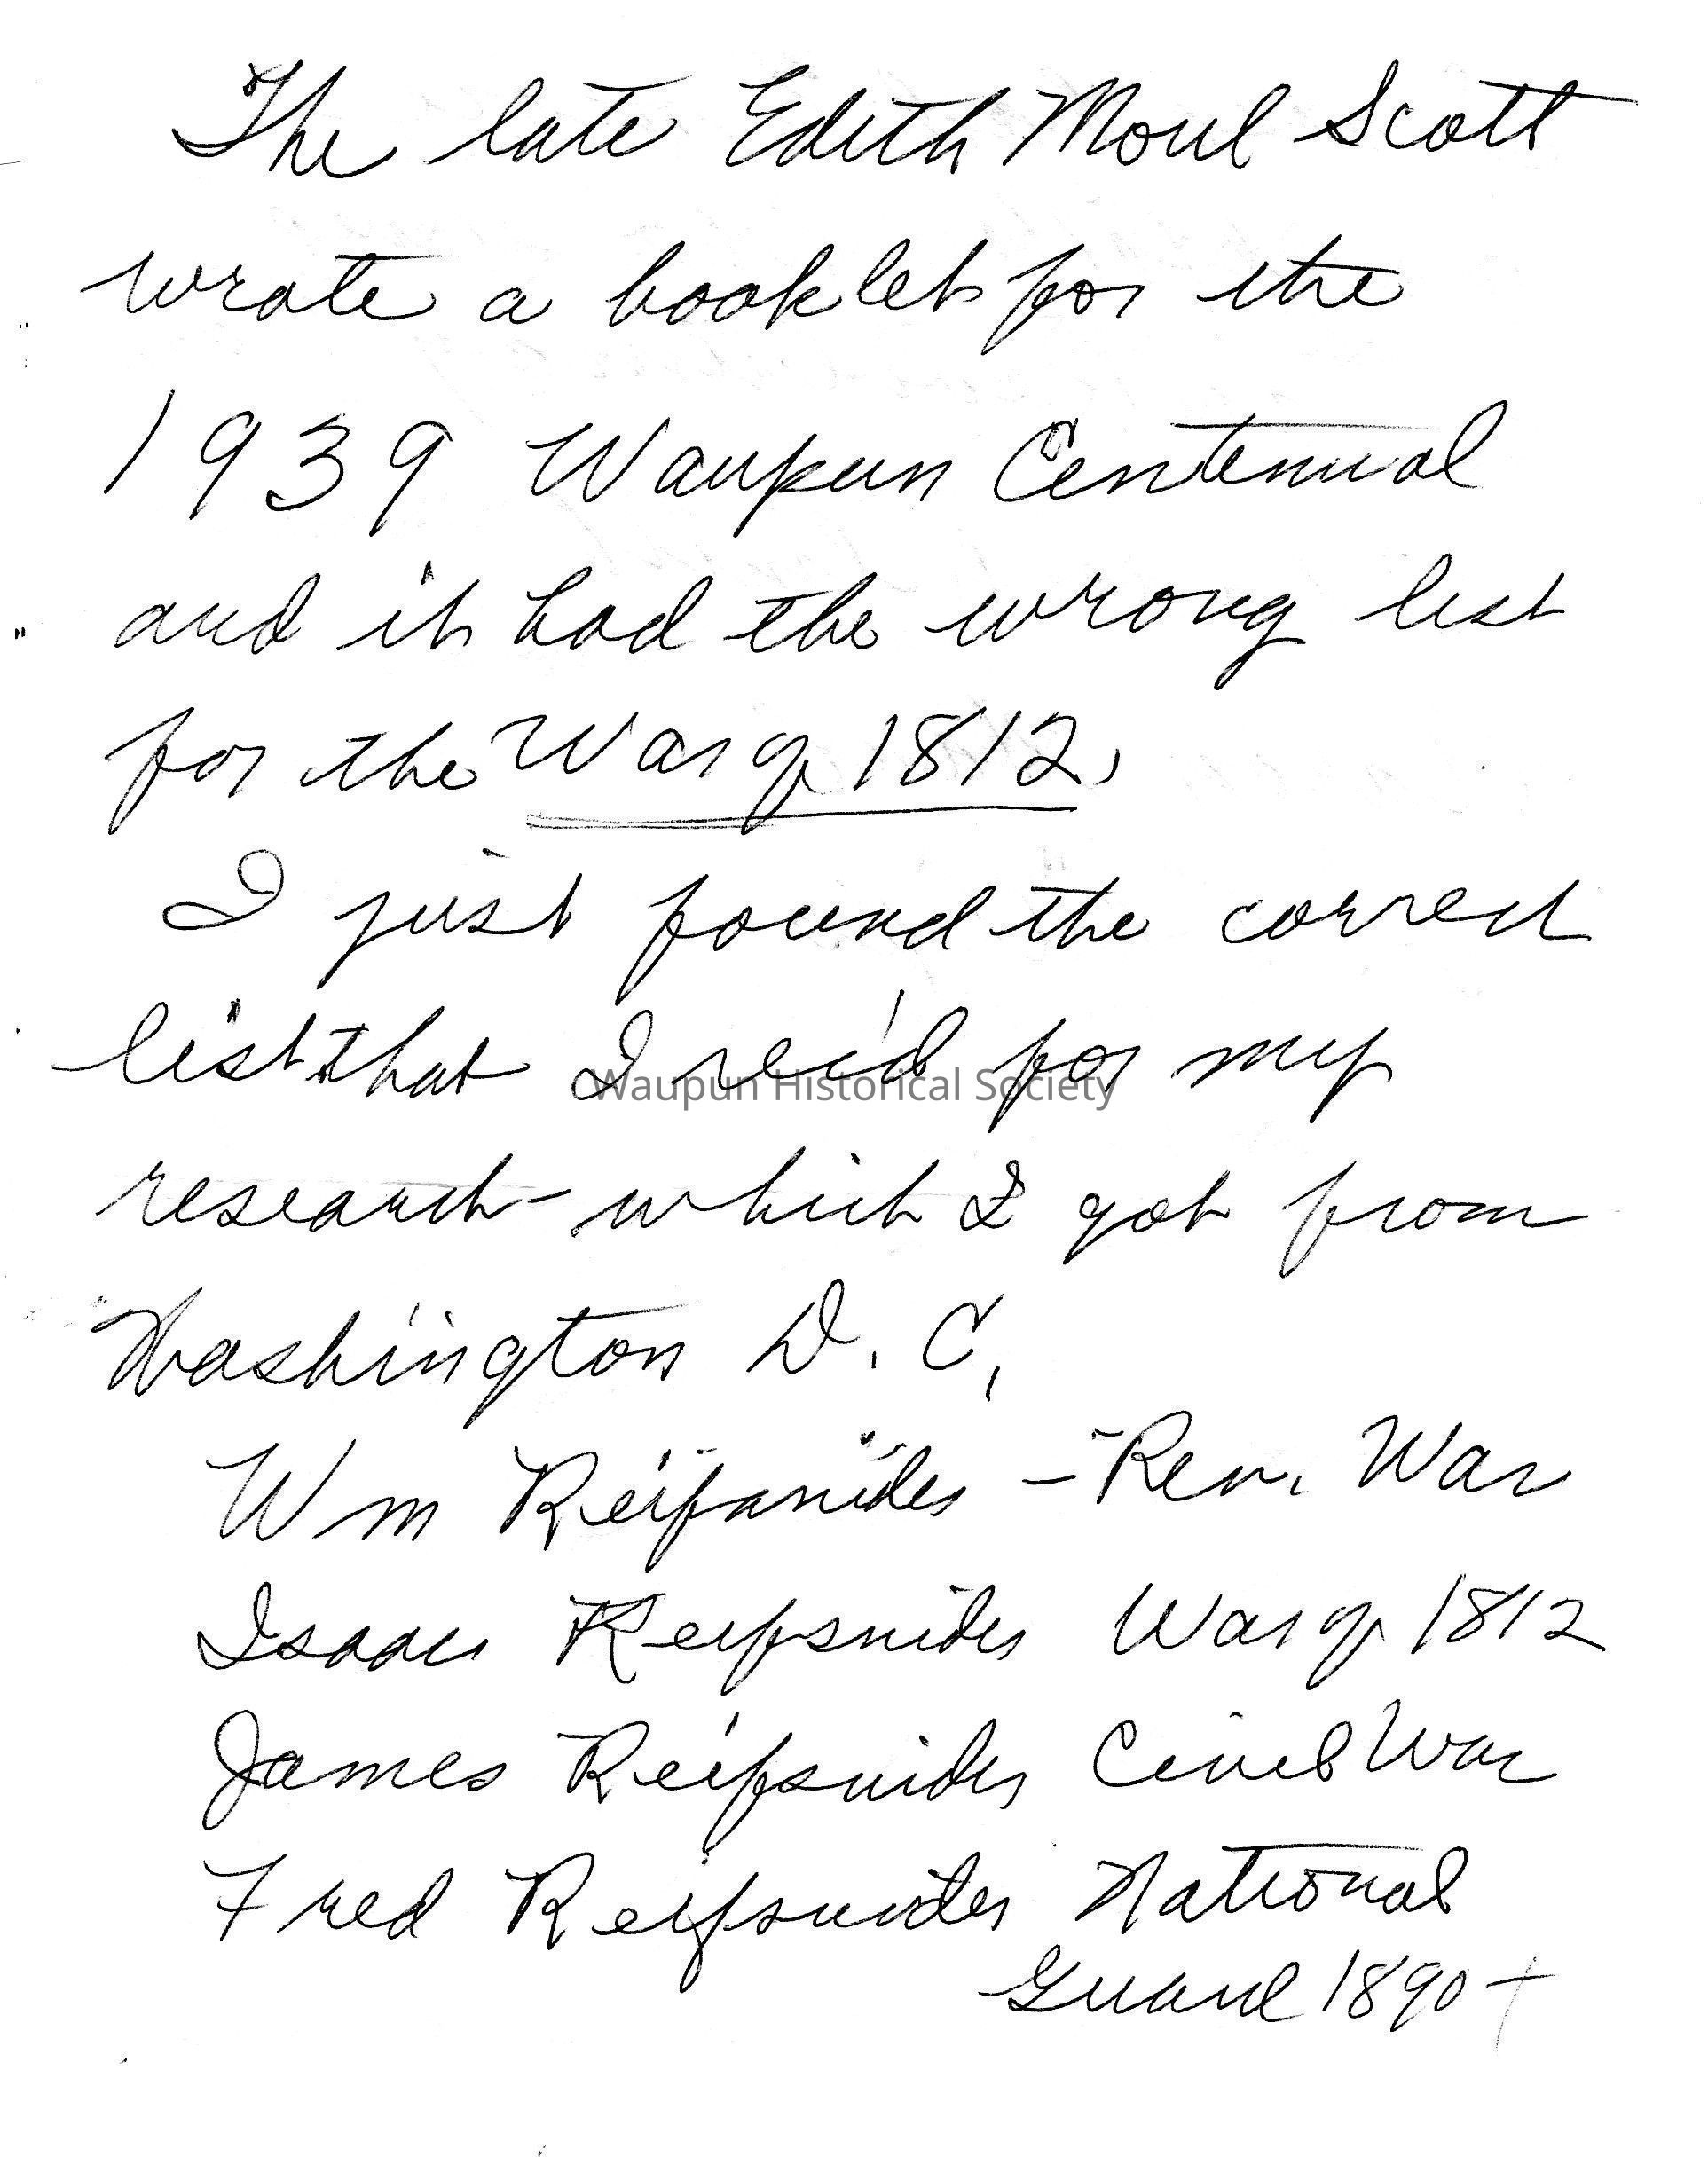 The late Edith Moul Scott
wrote a booklet for the
1939 Waupun Centennial
and it had the wrong list
for the War of 1812.
I just found the correct
list that I rec'd for my
Waupun Historical Society
research - which I got from
Washington D. C.
Wm Reifsnider - Rev. War
Isaac Reifsnider War of 1812
James Reifsnider Civil War
Fred Reifsnider National
Guard 1890+